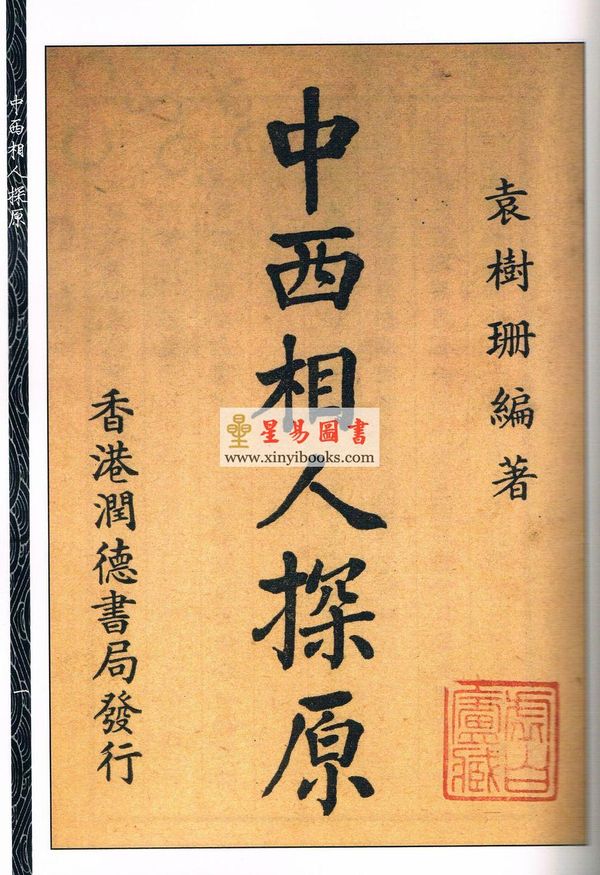 袁樹珊編著
中西相人探原
香港潤德書局發行
中西相人探原
一
星易圖書
www.xinyibooks.com